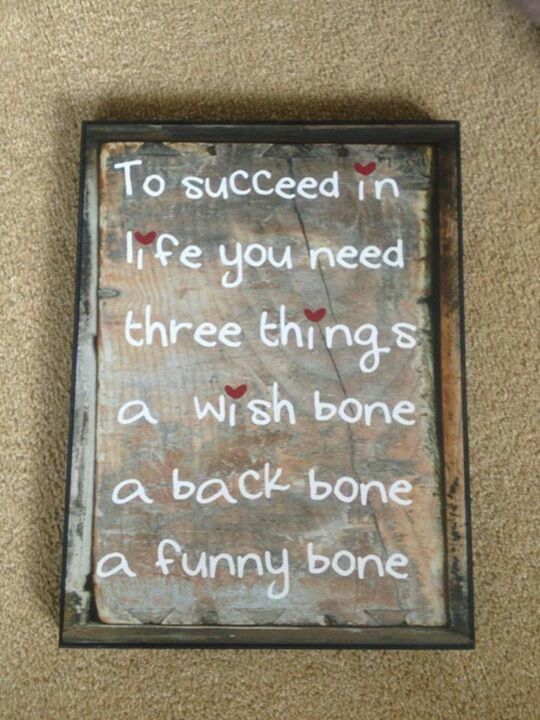 To succeed in
life you need
three things
a wish bone
a back bone
a funny bone